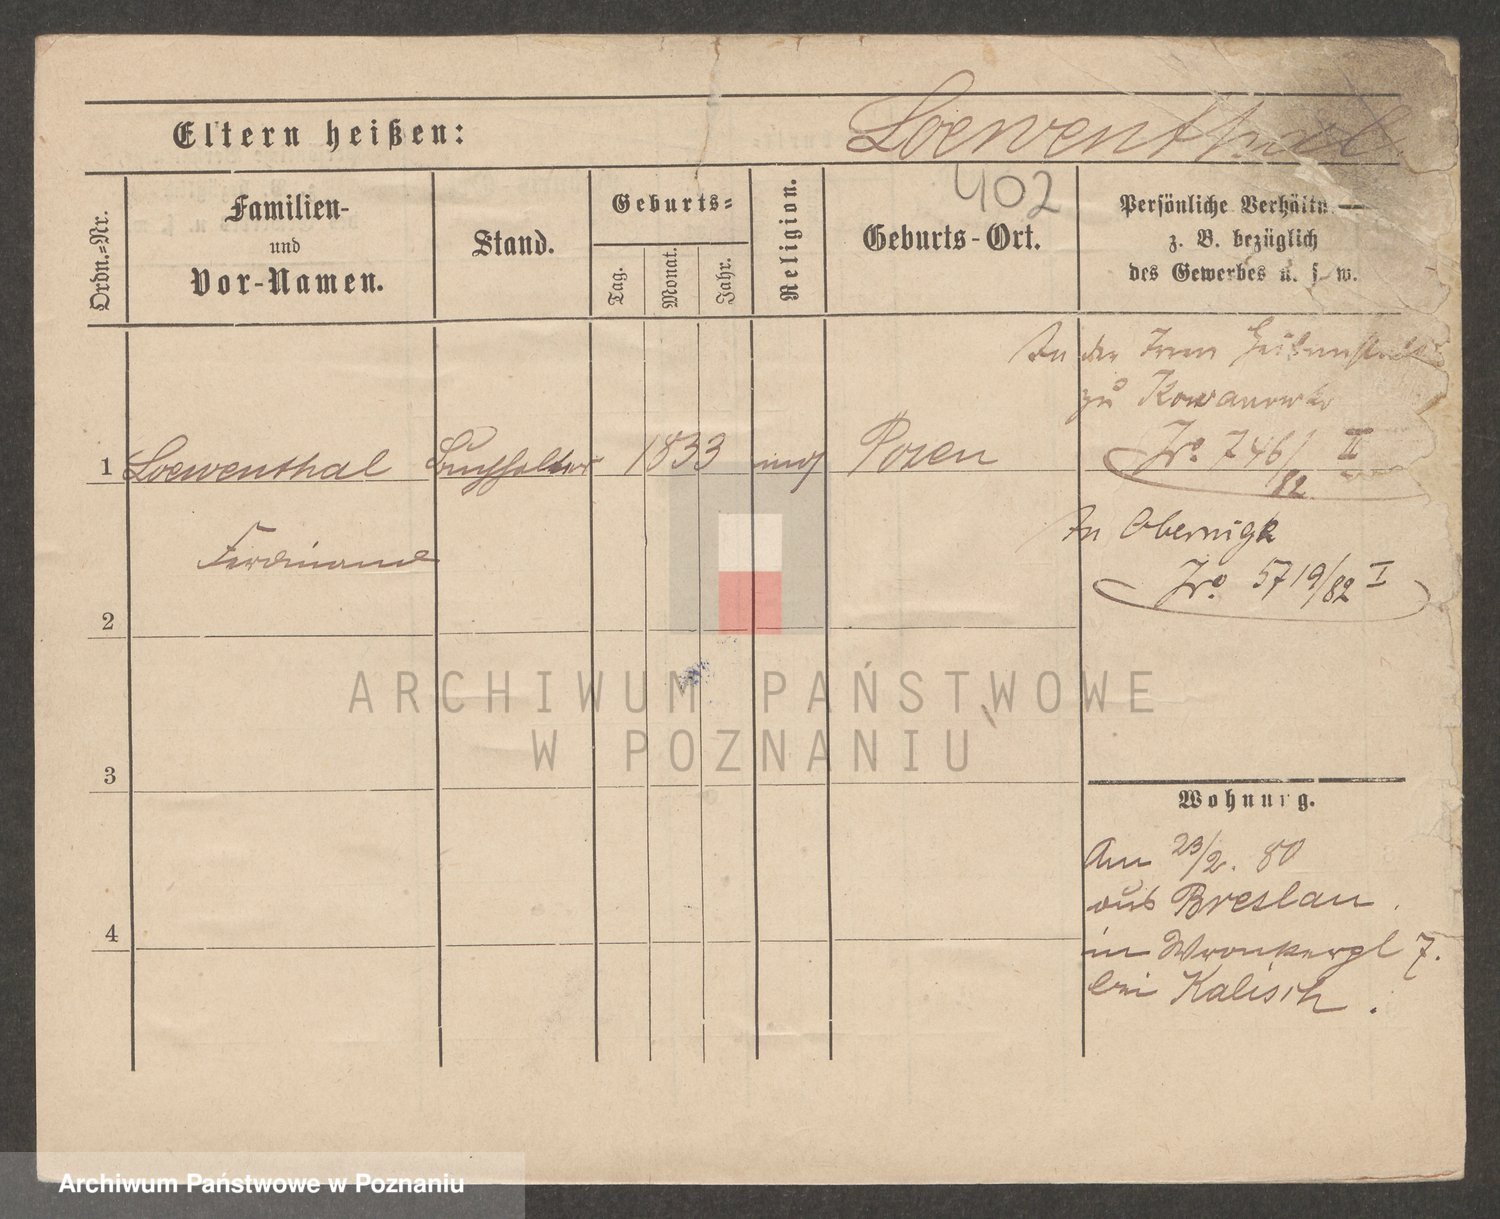 Loewenthal
Eltern heißen:
402
Ordn.=Nr.
Familien-
und
Vor-Namen.
Stand.
Geburts=
Tag.
Monat.
Jahr.
Religion.
Geburts-Ort.
Persönliche Verhältn
z. B. bezüglich
des Gewerbes u. s. w.
In der Irren Heilanstalt
zu Kowanowko
Jr. 746/82 II
1 Loewenthal Buchhalter 1833 mos Posen
Ferdinand
In Obernigk
Jr. 5719/82 I
2
ARCHIWUM PAŃSTWOWE
W POZNANIU
3
Wohnung.
Am 23/2. 80
aus Breslau.
in Wronkergl 7.
bei Kalisch.
4
Archiwum Państwowe w Poznaniu